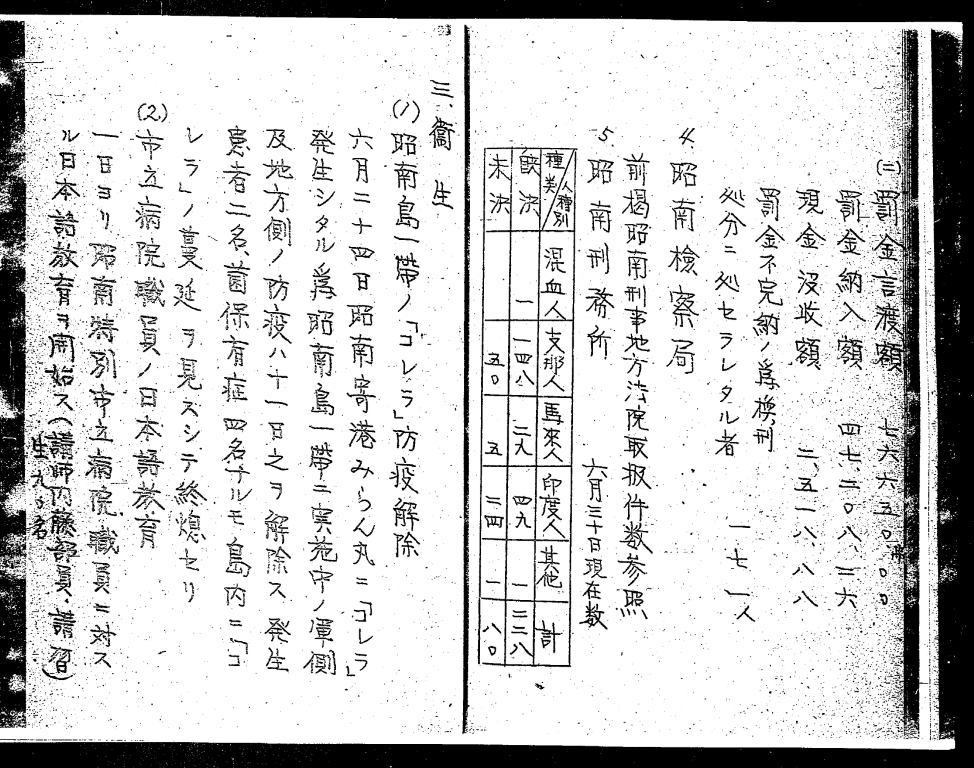 (二) 罰金言渡額 七六六五〇.〇〇
罰金納入額 四七、二〇八、二六
現金没收額 二、五一八、八八
罰金不完納ノ爲換刑
処分ニ処セラレタル者 一七一人
4. 昭南檢察局
前楬昭南刑事地方法院取扱件数参照
5. 昭南刑務所 六月三十日現在数
種類/人種別 混血人 支那人 馬來人 印度人 其他 計
既決 一 一四八 二九 四九 一 二二八
未決 五〇 五 二四 一 八〇
三、衞生
(1) 昭南島一帯ノ「コレラ」防疫解除
六月二十四日昭南寄港みらん丸ニ「コレラ」
発生シタル爲昭南島一帶ニ実施中ノ軍側
及地方側ノ防疫ハ十一日之ヲ解除ス 発生
患者二名、菌保有症四名ナルモ島内ニ「コ
レラ」ノ蔓延ヲ見スシテ終熄セリ
(2) 市立病院職員ノ日本語教育
一日ヨリ昭南特別市立病院職員ニ対ス
ル日本語教育ヲ開始ス(講師内藤部員、講習
生九〇名)